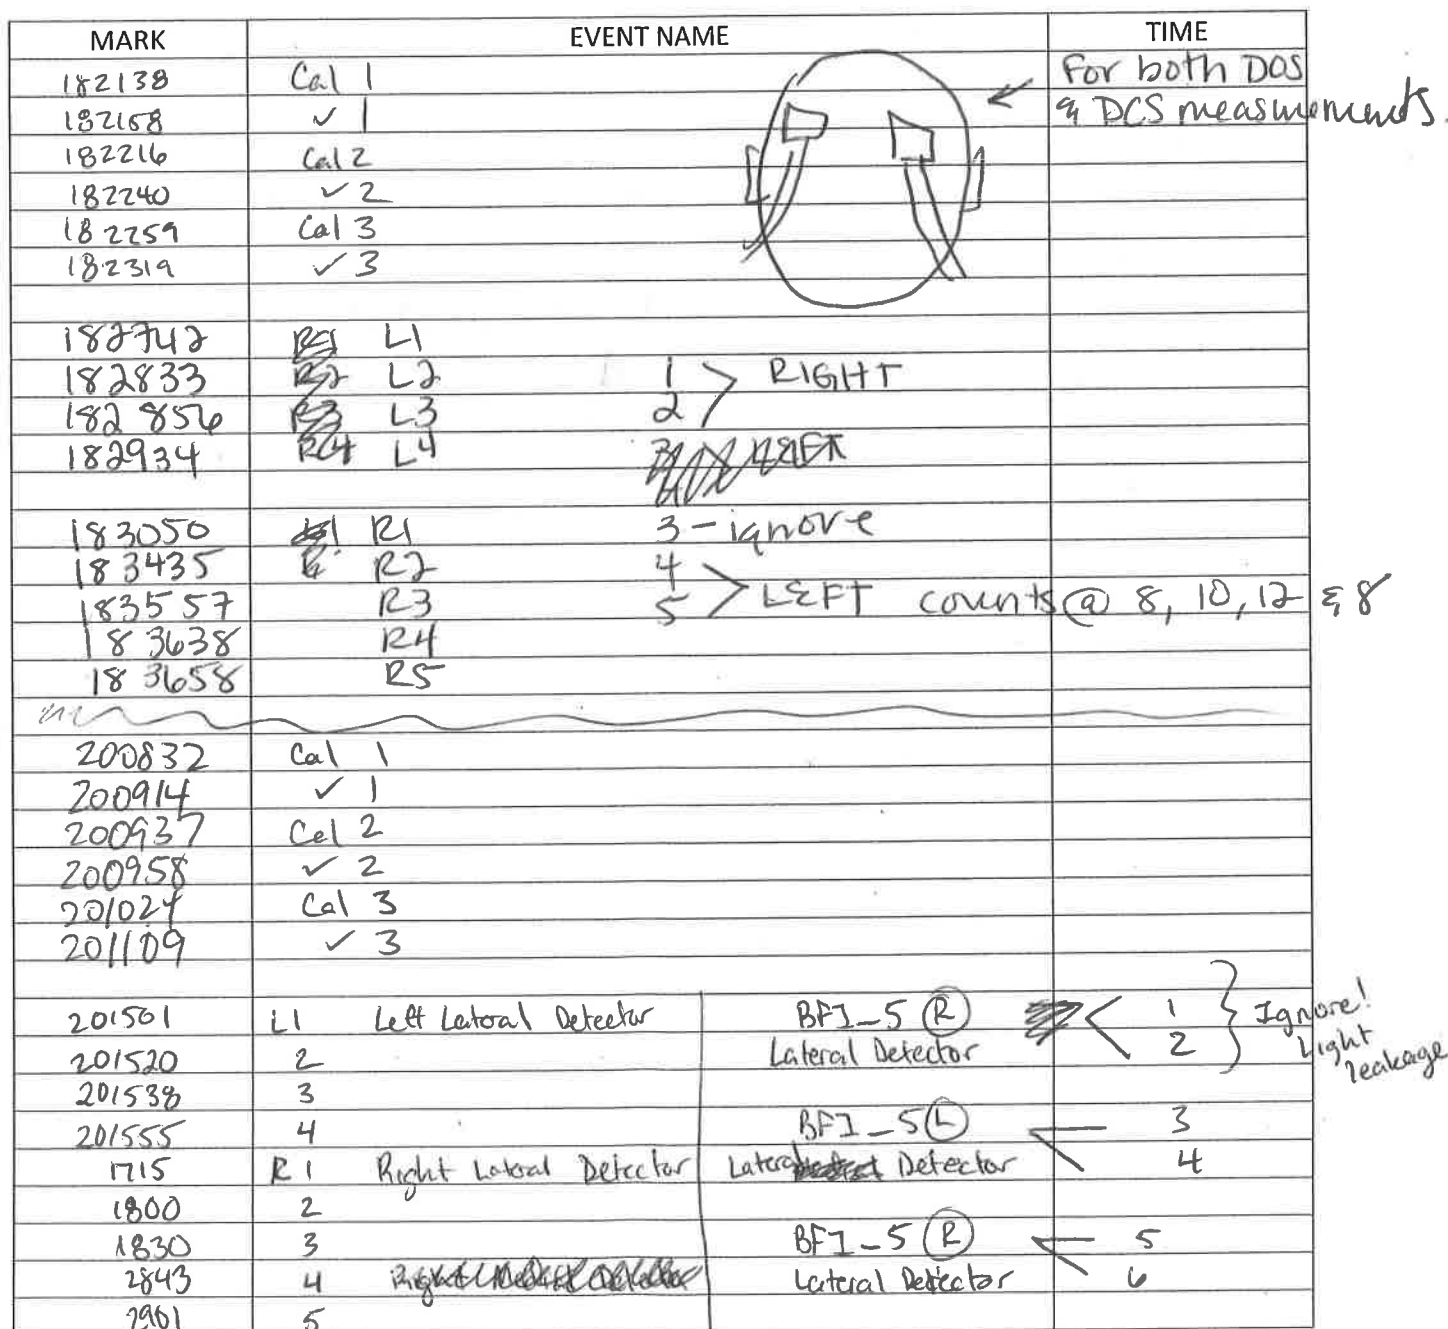 MARK EVENT NAME TIME
182138 Cal 1 For both DOS
182158 ✓ 1 & DCS measurements.
182216 Cal 2
182240 ✓ 2
182259 Cal 3
182319 ✓ 3
182742 L1
182833 L2 1 > RIGHT
182856 L3 2
182934 L4
183050 R1 3 - ignore
183435 R2 4
183557 R3 5 > LEFT counts @ 8, 10, 12 & 8
183638 R4
183658 R5
200832 Cal 1
200914 ✓ 1
200937 Cal 2
200958 ✓ 2
201024 Cal 3
201109 ✓ 3
201501 L1 Left Lateral Detector BFI_5 R < 1 } Ignore!
201520 2 Lateral Detector 2 Light
201538 3 leakage
201555 4 BFI_5 L 3
1715 R1 Right Lateral Detector Lateral Detector 4
1800 2
1830 3 BFI_5 R 5
2843 4 Lateral Detector 6
2901 5